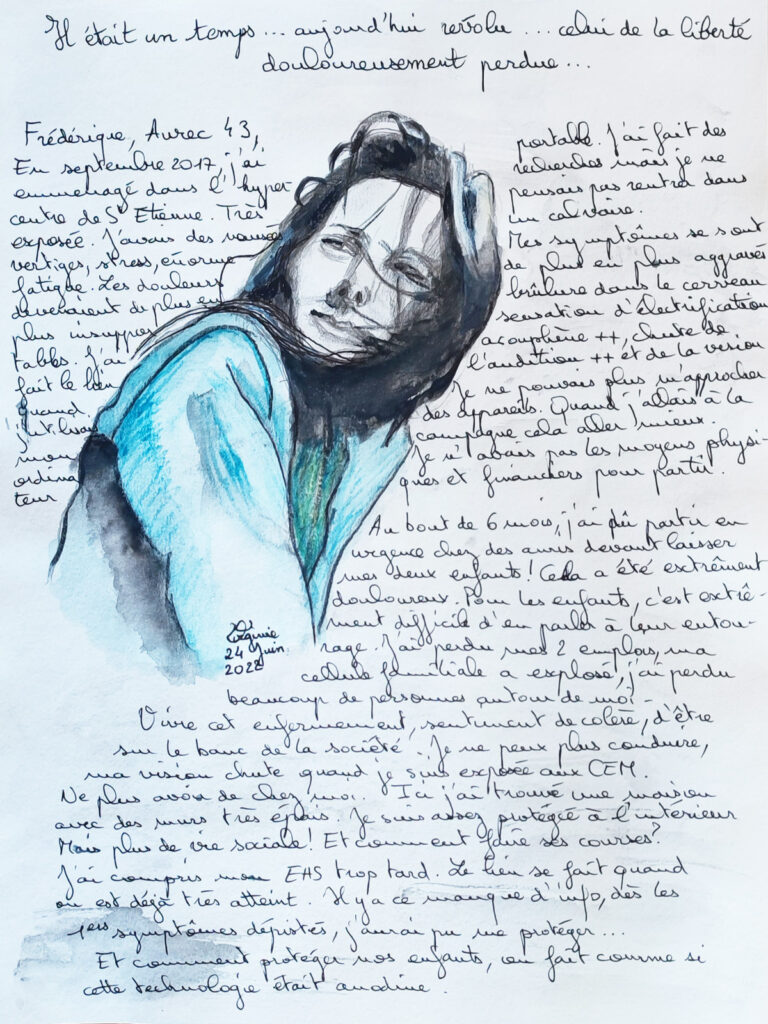 Il était un temps... aujourd'hui révolu... celui de la liberté
douloureusement perdue...
Frédérique, Aurec 43,
En septembre 2017, j'ai
emménagé dans l'hyper
centre de St Etienne. Très
exposée. J'avais des nausées
vertiges, stress, énorme
fatigue. Les douleurs
devenaient de plus en
plus insuppor
tables. J'ai
fait le lien
quand
j'utilisais
mon
ordina
teur
portable. J'ai fait des
recherches mais je ne
pensais pas rentrer dans
un calvaire.
Mes symptômes se sont
de plus en plus aggravés
brûlure dans le cerveau
sensation d'électrification
acouphène ++, chute de
l'audition ++ et de la vision
Je ne pouvais plus m'approcher
des appareils. Quand j'allais à la
campagne cela aller mieux.
Je n'avais pas les moyens physi-
ques et financiers pour partir.
Au bout de 6 mois, j'ai dû partir en
urgence chez des amis devant laisser
mes deux enfants! Cela a été extrêment
douloureux. Pour les enfants, c'est extrê-
ment difficile d'en parler à leur entou-
rage. J'ai perdu mes 2 emplois, ma
cellule familiale a explosé, j'ai perdu
beaucoup de personnes autour de moi -
Vivre cet enfermement, sentiment de colère, d'être
sur le banc de la société. Je ne peux plus conduire,
ma vision chute quand je suis exposée aux CEM.
Ne plus avoir de chez moi. Ici j'ai trouvé une maison
avec des murs très épais. Je suis assez protégée à l'intérieur
Mais plus de vie sociale! Et comment faire ses courses?
J'ai compris mon EHS trop tard. Le lien se fait quand
on est déjà très atteint. Il y a ce manque d'info, dès les
1ers symptômes dépistés, j'aurai pu me protéger...
Et comment protéger nos enfants, on fait comme si
cette technologie était anodine.
Virginie
24 Juin
2022